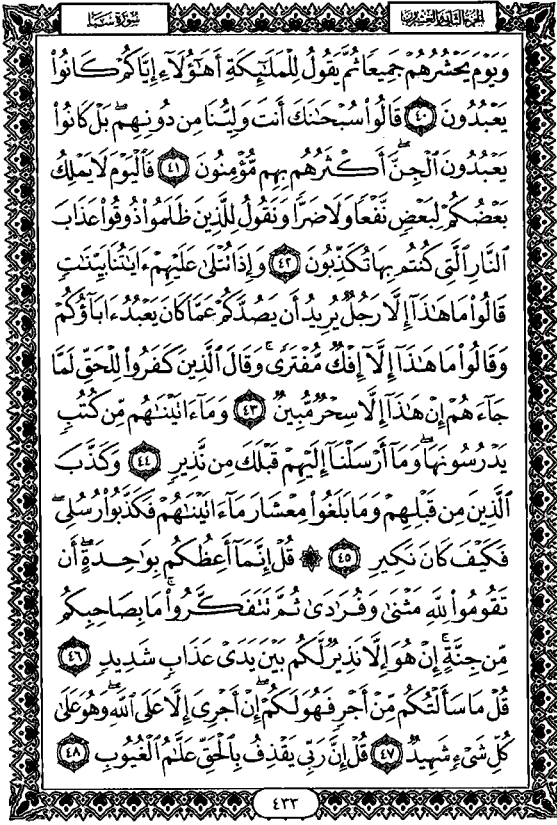 سُورَةُ سَبَإٍ
الجُزْءُ الثَّانِي وَالعِشْرُون
وَيَوْمَ يَحْشُرُهُمْ جَمِيعًا ثُمَّ يَقُولُ لِلْمَلَٰٓئِكَةِ أَهَٰٓؤُلَآءِ إِيَّاكُمْ كَانُوا۟
يَعْبُدُونَ ﴿٤٠﴾ قَالُوا۟ سُبْحَٰنَكَ أَنتَ وَلِيُّنَا مِن دُونِهِم ۖ بَلْ كَانُوا۟
يَعْبُدُونَ ٱلْجِنَّ ۖ أَكْثَرُهُم بِهِم مُّؤْمِنُونَ ﴿٤١﴾ فَٱلْيَوْمَ لَا يَمْلِكُ
بَعْضُكُمْ لِبَعْضٍ نَّفْعًا وَلَا ضَرًّا وَنَقُولُ لِلَّذِينَ ظَلَمُوا۟ ذُوقُوا۟ عَذَابَ
ٱلنَّارِ ٱلَّتِى كُنتُم بِهَا تُكَذِّبُونَ ﴿٤٢﴾ وَإِذَا تُتْلَىٰ عَلَيْهِمْ ءَايَٰتُنَا بَيِّنَٰتٍ
قَالُوا۟ مَا هَٰذَآ إِلَّا رَجُلٌ يُرِيدُ أَن يَصُدَّكُمْ عَمَّا كَانَ يَعْبُدُ ءَابَآؤُكُمْ
وَقَالُوا۟ مَا هَٰذَآ إِلَّآ إِفْكٌ مُّفْتَرًى ۚ وَقَالَ ٱلَّذِينَ كَفَرُوا۟ لِلْحَقِّ لَمَّا
جَآءَهُمْ إِنْ هَٰذَآ إِلَّا سِحْرٌ مُّبِينٌ ﴿٤٣﴾ وَمَآ ءَاتَيْنَٰهُم مِّن كُتُبٍ
يَدْرُسُونَهَا ۖ وَمَآ أَرْسَلْنَآ إِلَيْهِمْ قَبْلَكَ مِن نَّذِيرٍ ﴿٤٤﴾ وَكَذَّبَ
ٱلَّذِينَ مِن قَبْلِهِمْ وَمَا بَلَغُوا۟ مِعْشَارَ مَآ ءَاتَيْنَٰهُمْ فَكَذَّبُوا۟ رُسُلِى ۖ
فَكَيْفَ كَانَ نَكِيرِ ﴿٤٥﴾ ۞ قُلْ إِنَّمَآ أَعِظُكُم بِوَٰحِدَةٍ ۖ أَن
تَقُومُوا۟ لِلَّهِ مَثْنَىٰ وَفُرَٰدَىٰ ثُمَّ تَتَفَكَّرُوا۟ ۚ مَا بِصَاحِبِكُم
مِّن جِنَّةٍ ۚ إِنْ هُوَ إِلَّا نَذِيرٌ لَّكُم بَيْنَ يَدَىْ عَذَابٍ شَدِيدٍ ﴿٤٦﴾
قُلْ مَا سَأَلْتُكُم مِّنْ أَجْرٍ فَهُوَ لَكُمْ ۖ إِنْ أَجْرِىَ إِلَّا عَلَى ٱللَّهِ ۖ وَهُوَ عَلَىٰ
كُلِّ شَىْءٍ شَهِيدٌ ﴿٤٧﴾ قُلْ إِنَّ رَبِّى يَقْذِفُ بِٱلْحَقِّ عَلَّٰمُ ٱلْغُيُوبِ ﴿٤٨﴾
٤٣٣